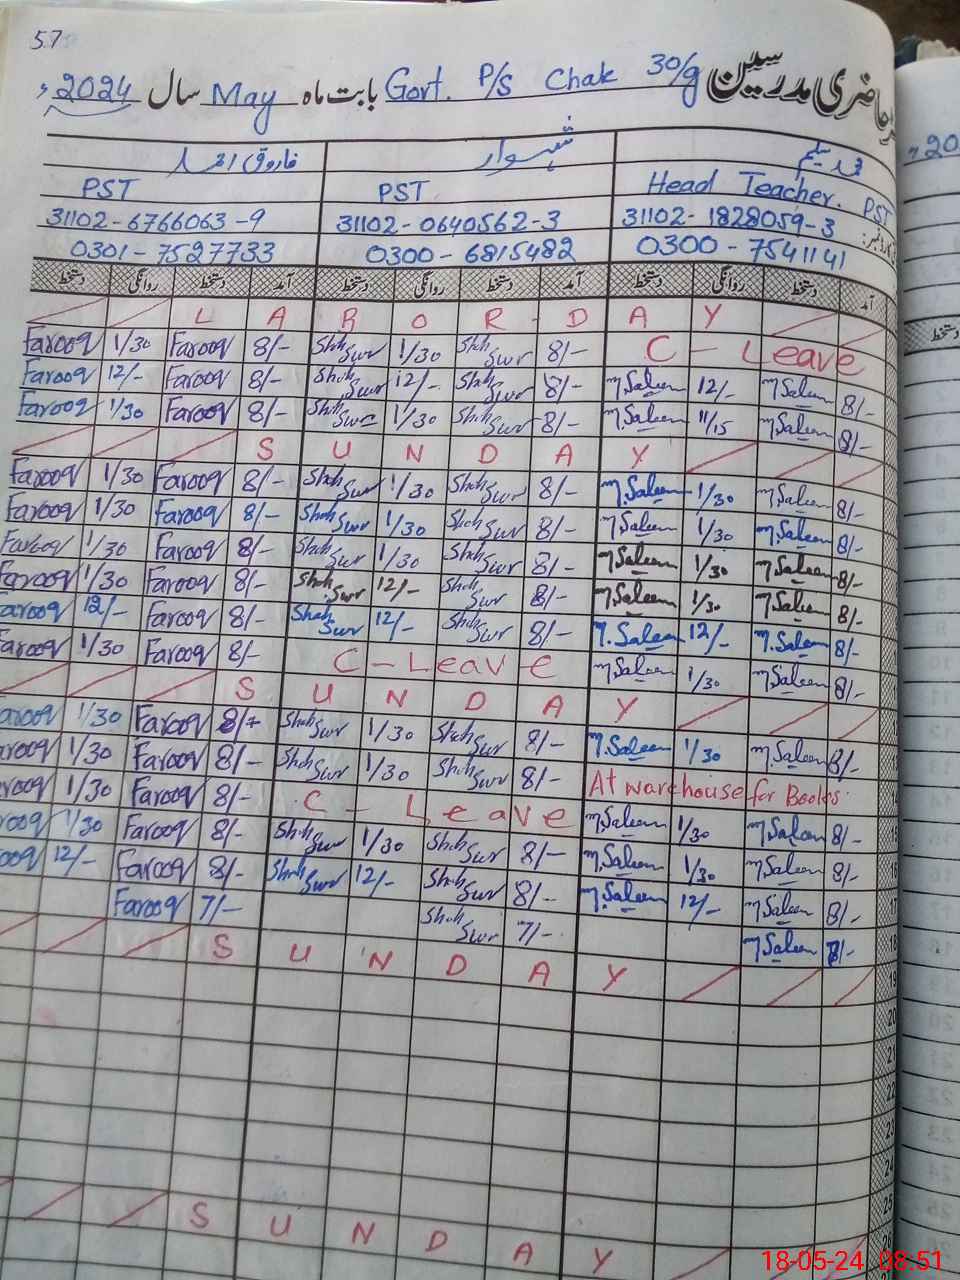 57
حاضری مدرسین Govt. P/S Chak 30/g بابت ماہ May سال 2024ء
محمد سلیم شہسوار فاروق احمد
Head Teacher. PST PST PST
31102-1828059-3 31102-0640562-3 31102-6766063-9
0300-7541141 0300-6815482 0301-7527733
آمد دستخط روانگی دستخط آمد دستخط روانگی دستخط آمد دستخط روانگی دستخط
L A B O R D A Y
Farooq 1/30 Farooq 8/- Shah Swr 1/30 Shah Swr 8/- C - Leave
Farooq 12/- Farooq 8/- Shah Swr 12/- Shah Swr 8/- M Saleem 12/- M Saleem 8/-
Farooq 1/30 Farooq 8/- Shah Swr 1/30 Shah Swr 8/- M Saleem 11/15 M Saleem 8/-
S U N D A Y
Farooq 1/30 Farooq 8/- Shah Swr 1/30 Shah Swr 8/- M.Saleem 1/30 M Saleem 8/-
Farooq 1/30 Farooq 8/- Shah Swr 1/30 Shah Swr 8/- M Saleem 1/30 M Saleem 8/-
Farooq 1/30 Farooq 8/- Shah Swr 1/30 Shah Swr 8/- M Saleem 1/30 M Saleem 8/-
Farooq 1/30 Farooq 8/- Shah Swr 12/- Shah Swr 8/- M Saleem 1/30 M Saleem 8/-
Farooq 12/- Farooq 8/- Shah Swr 12/- Shah Swr 8/- M.Saleem 12/- M.Saleem 8/-
Farooq 1/30 Farooq 8/- C - Leave M Saleem 1/30 M Saleem 8/-
S U N D A Y
arooq 1/30 Farooq 8/- Shah Swr 1/30 Shah Swr 8/- M.Saleem 1/30 M.Saleem 8/-
arooq 1/30 Farooq 8/- Shah Swr 1/30 Shah Swr 8/- At warehouse for Books.
arooq 1/30 Farooq 8/- C - Leave M Saleem 1/30 M Saleem 8/-
ooq 1/30 Farooq 8/- Shah Swr 1/30 Shah Swr 8/- M Saleem 1/30 M Saleem 8/-
ooq 12/- Farooq 8/- Shah Swr 12/- Shah Swr 8/- M.Saleem 12/- M Saleem 8/-
Farooq 7/- Shah Swr 7/- M Saleem 7/-
S U N D A Y 19
20
21
22
23
24
25
S U N D A Y 26
18-05-24 08:51